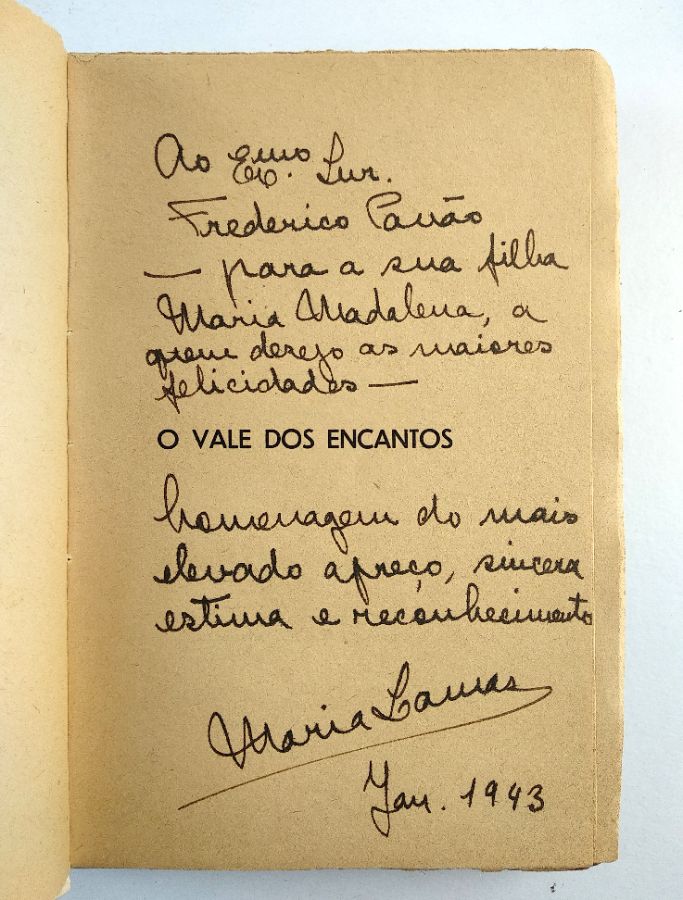 Ao Exmo. Snr.
Frederico Pavão
— para a sua filha
Maria Madalena, a
quem desejo as maiores
felicidades —
O VALE DOS ENCANTOS
homenagem do mais
elevado apreço, sincera
estima e reconhecimento
Maria Lamas
Jan. 1943